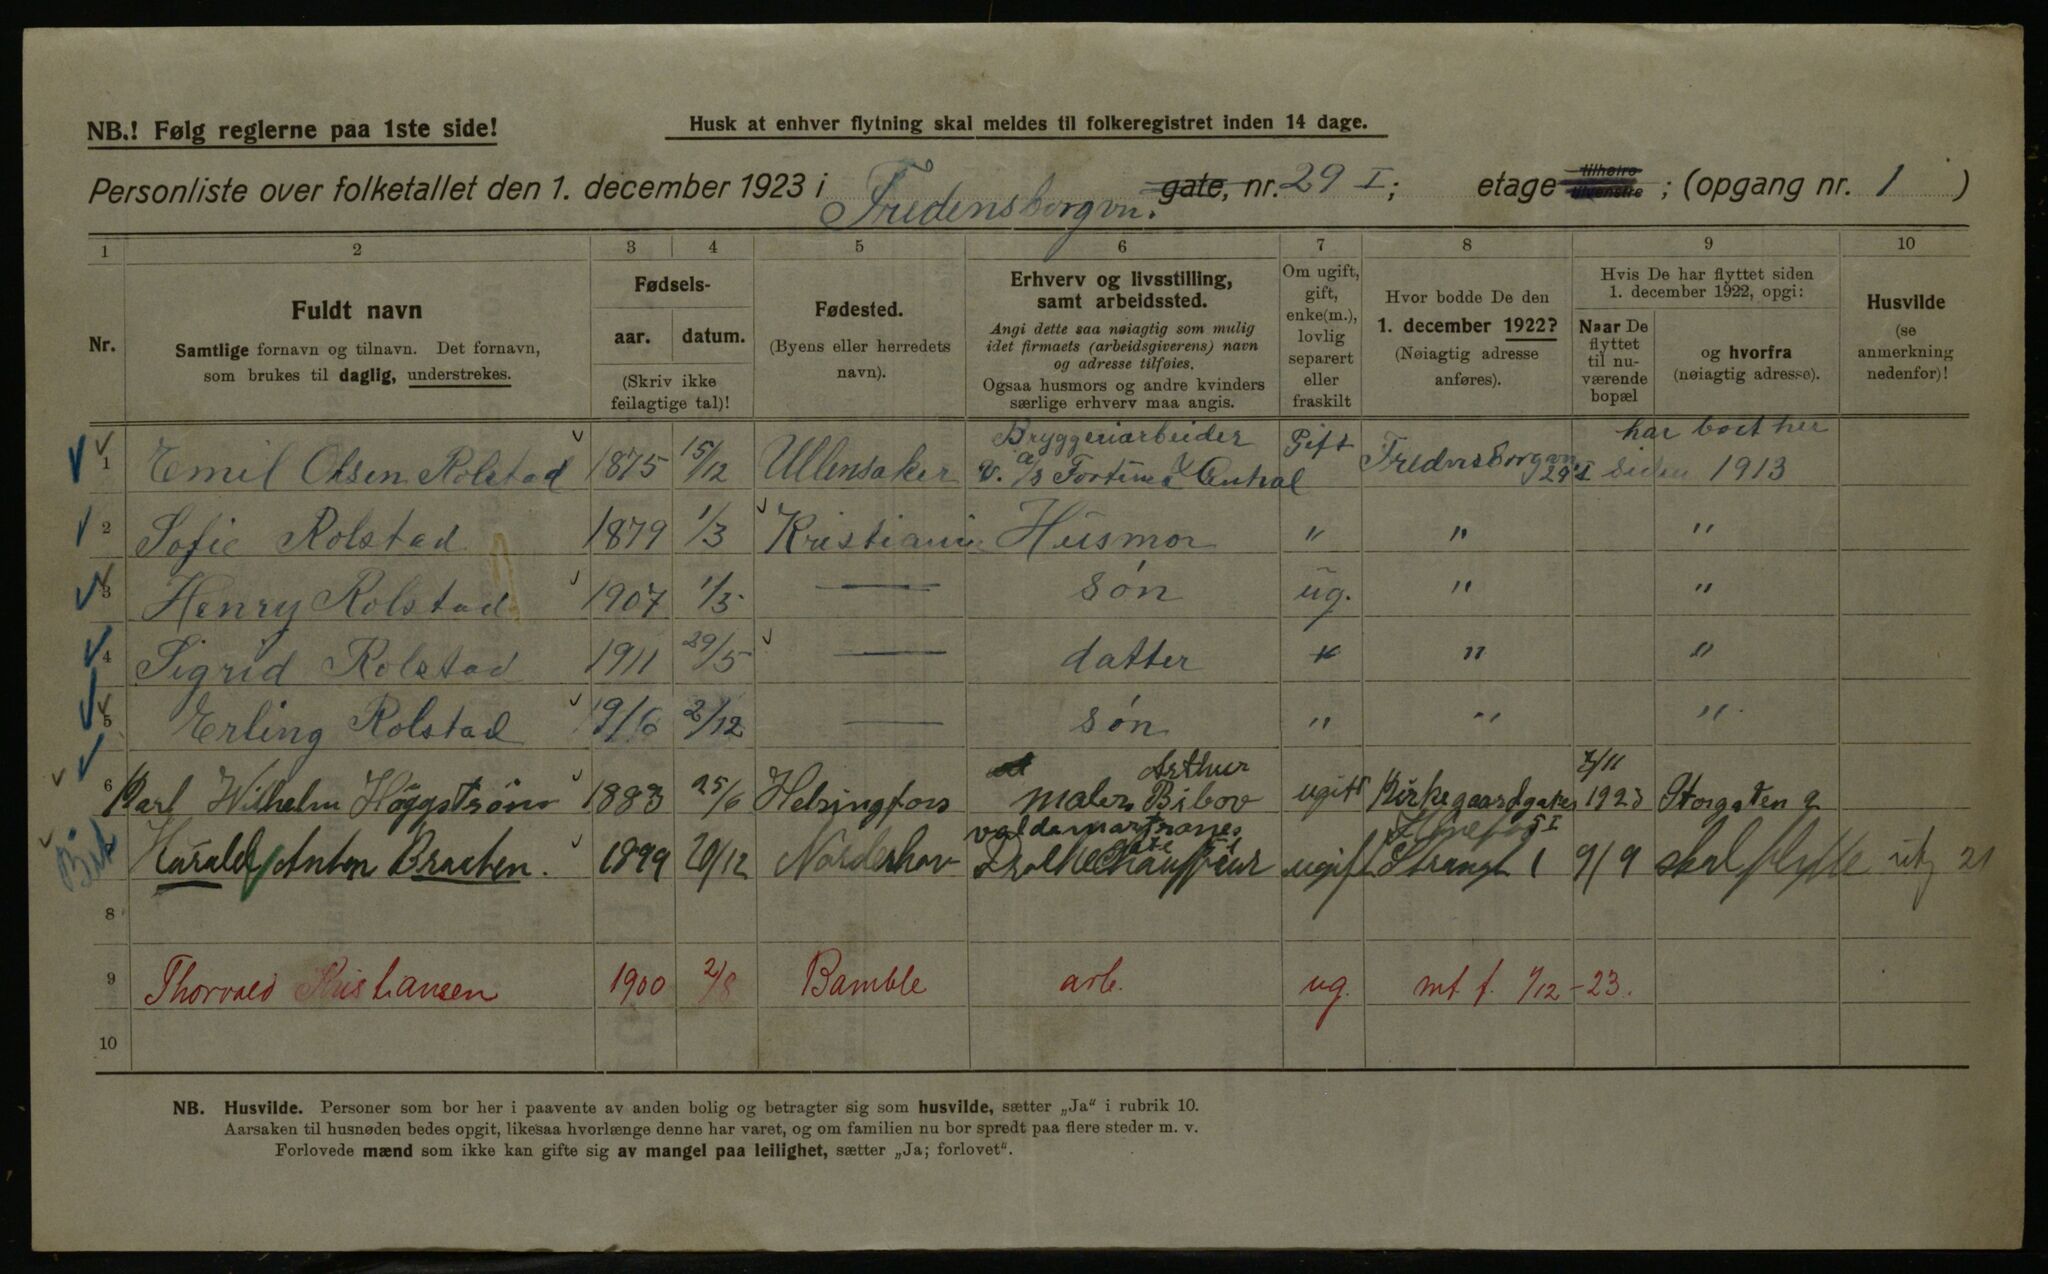 NB.! Følg reglerne paa 1ste side!
Husk at enhver flytning skal meldes til folkeregistret inden 14 dage.
Personliste over folketallet den 1. december 1923 i Fredensborgvn. gate, nr. 29 I; etage tilhøire tilvenstre; (opgang nr. 1)
1 2 3 4 5 6 7 8 9 10
Nr.
Fuldt navn
Samtlige fornavn og tilnavn. Det fornavn,
som brukes til daglig, understrekes.
Fødsels-
aar. datum.
(Skriv ikke
feilagtige tal)!
Fødested.
(Byens eller herredets
navn).
Erhverv og livsstilling,
samt arbeidssted.
Angi dette saa nøiagtig som mulig
idet firmaets (arbeidsgiverens) navn
og adresse tilføies.
Ogsaa husmors og andre kvinders
særlige erhverv maa angis.
Om ugift,
gift,
enke(m.),
lovlig
separert
eller
fraskilt
Hvor bodde De den
1. december 1922?
(Nøiagtig adresse
anføres).
Hvis De har flyttet siden
1. december 1922, opgi:
Naar De
flyttet
til nu-
værende
bopæl
og hvorfra
(nøiagtig adresse).
Husvilde
(se
anmerkning
nedenfor)!
1 Emil Olsen Rolstad 1875 15/12 Ullensaker Bryggeriarbeider v. a/s Fortuna Central Gift Fredensborgvn 29 I har boet her siden 1913
2 Sofie Rolstad 1879 1/3 Kristiania Husmor " " "
3 Henry Rolstad 1907 1/5 — søn ug. " "
4 Sigrid Rolstad 1911 29/5 — datter " " "
5 Erling Rolstad 1916 2/12 — søn " " "
6 Karl Wilhelm Höggström 1883 25/6 Helsingfors maler Arthur Bibow ugift Kirkegaardgaten 7/11 1923 Storgaten 9
valdemartranes gate
Harald Anton Braaten. 1899 20/12 Norderhov Chauffeur ugift Hønefos Strangt 1 9/9 skal flytte utg 21
8
9 Thorvald Kristiansen 1900 2/8 Bamble arb. ug. mt f. 1/12-23.
10
NB. Husvilde. Personer som bor her i paavente av anden bolig og betragter sig som husvilde, sætter „Ja" i rubrik 10.
Aarsaken til husnøden bedes opgit, likesaa hvorlænge denne har varet, og om familien nu bor spredt paa flere steder m. v.
Forlovede mænd som ikke kan gifte sig av mangel paa leilighet, sætter „Ja; forlovet".